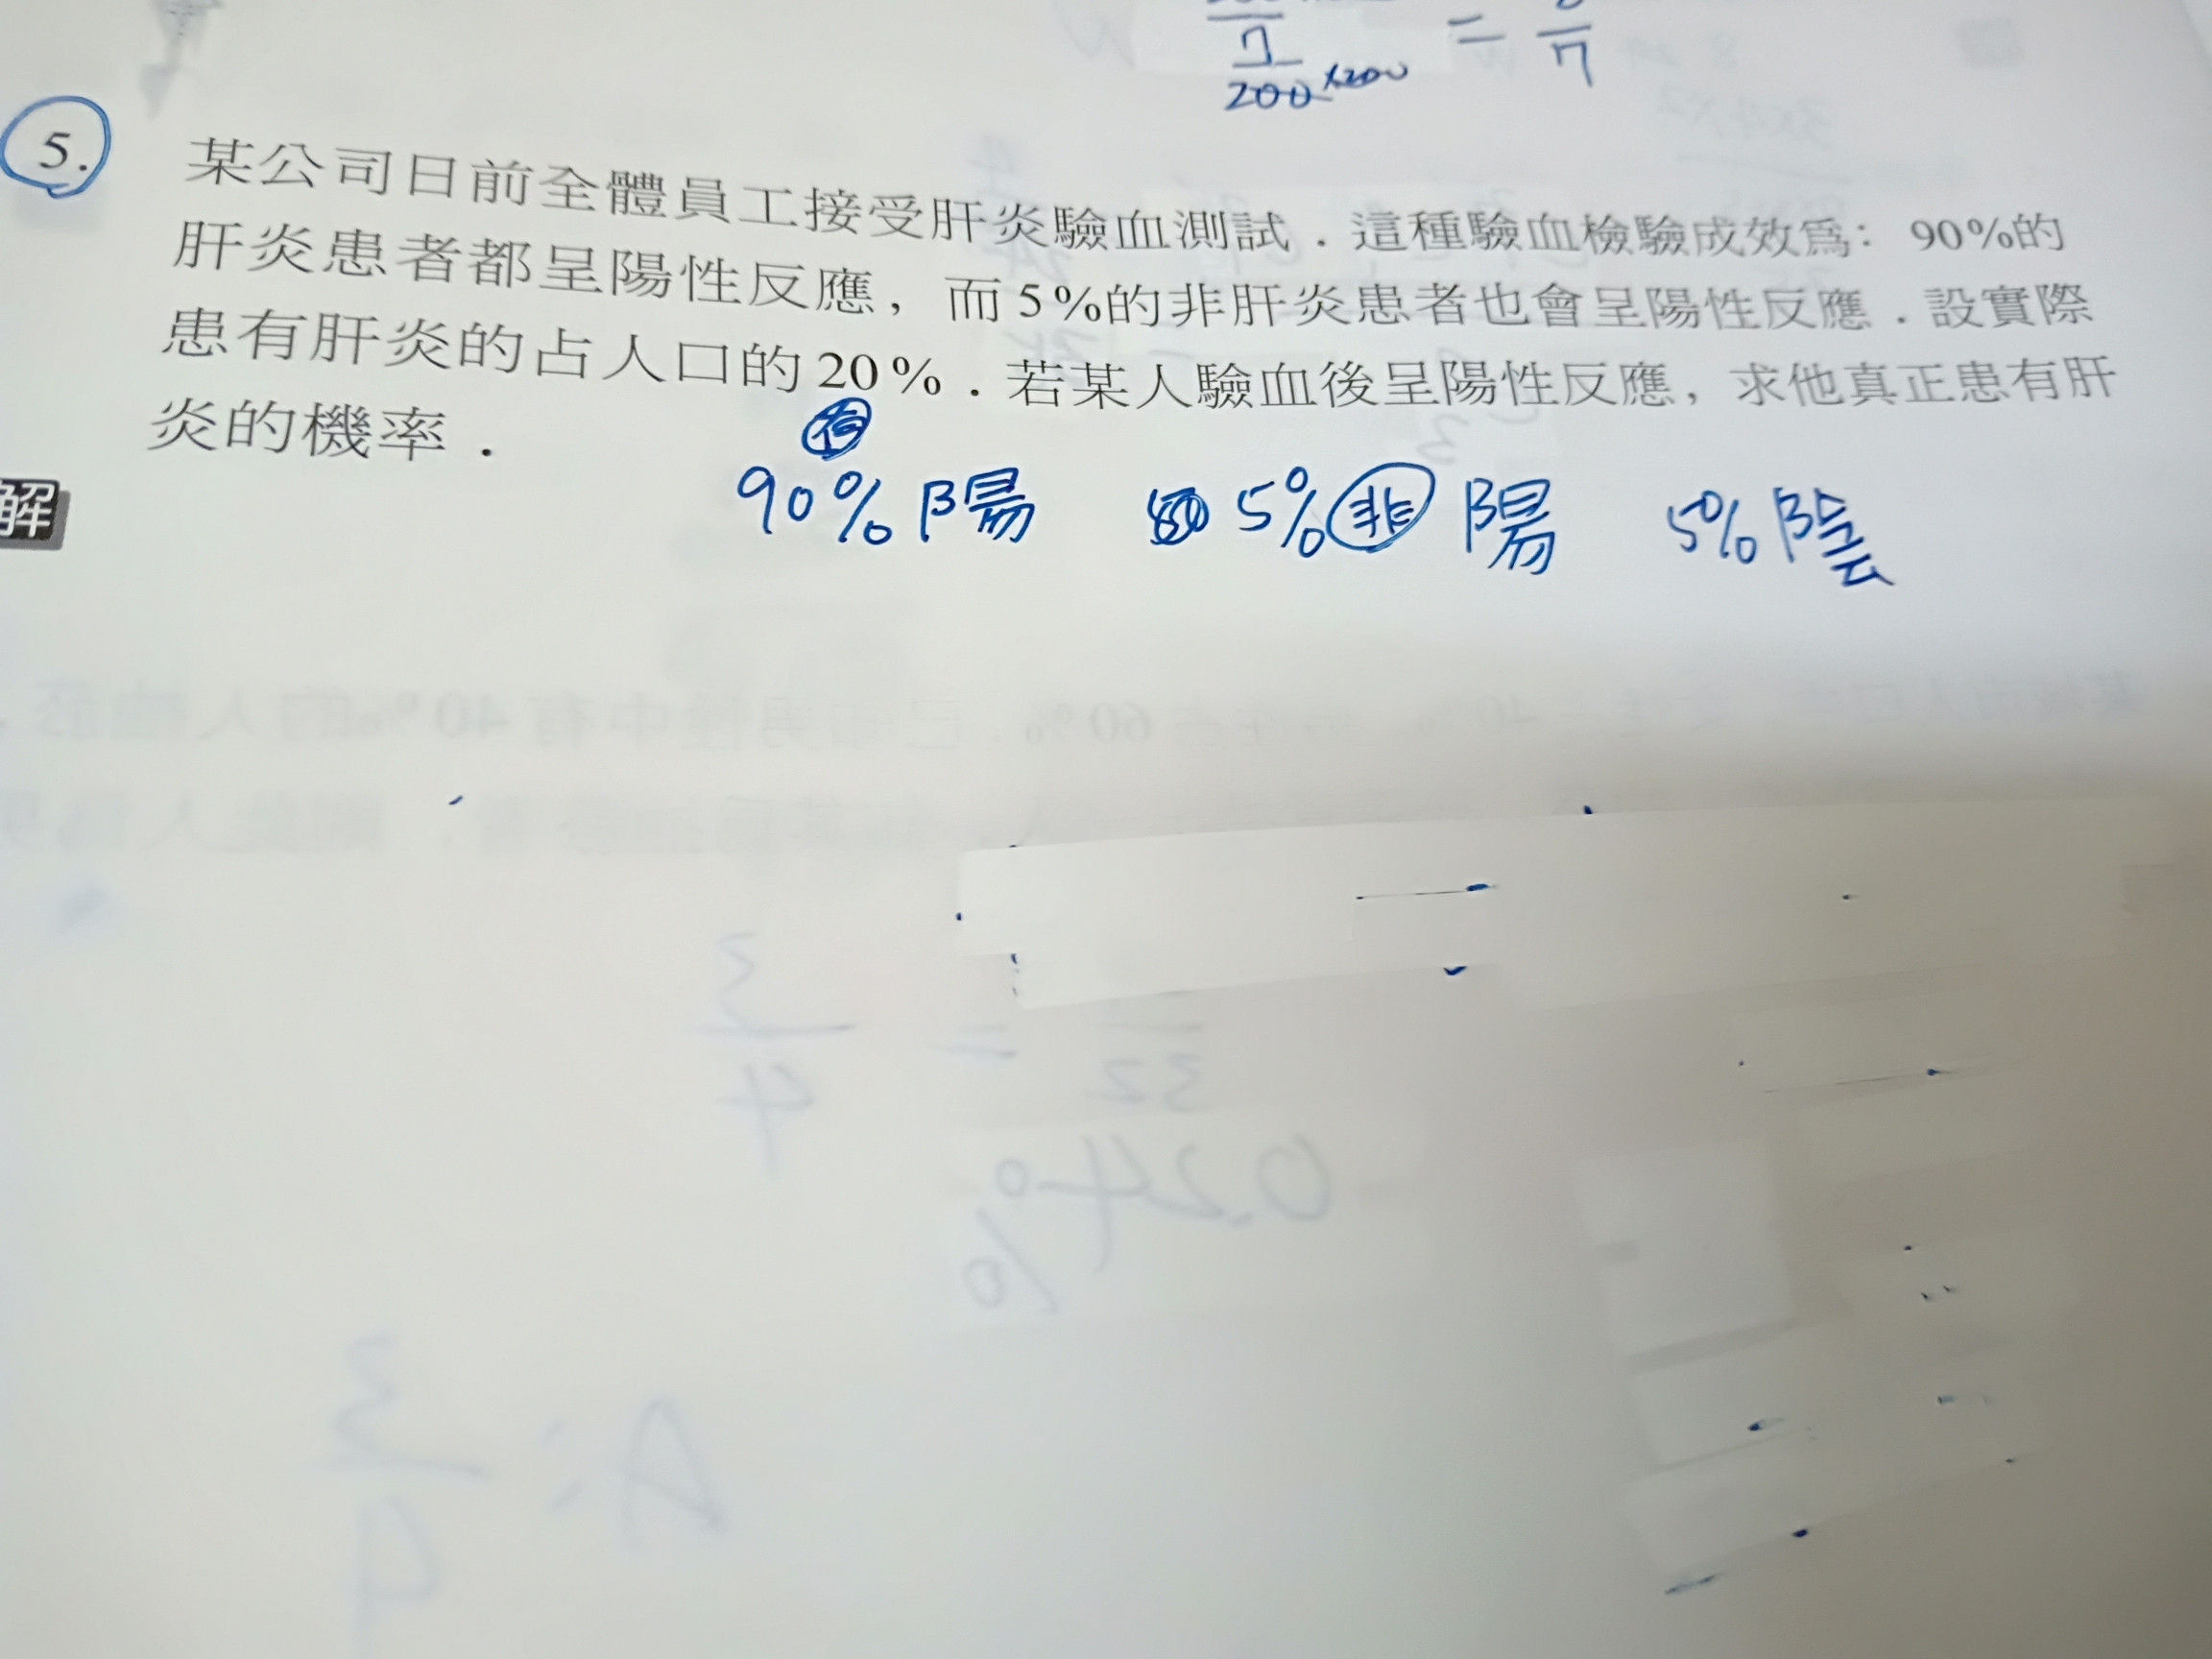 7
200 ×200 = 7
5. 某公司日前全體員工接受肝炎驗血測試．這種驗血檢驗成效為：90%的
肝炎患者都呈陽性反應，而5%的非肝炎患者也會呈陽性反應．設實際
患有肝炎的占人口的20%．若某人驗血後呈陽性反應，求他真正患有肝
炎的機率．
解
90% 陽 5% 非 陽 5% 陰